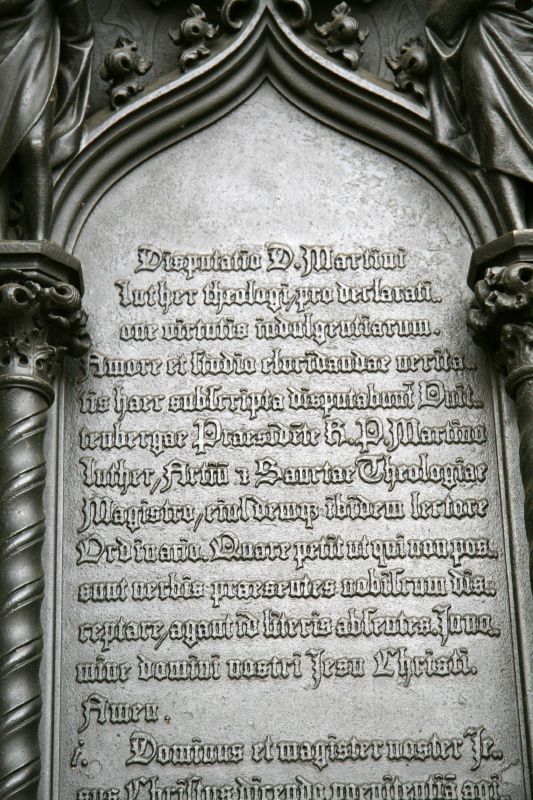 Disputatio D. Martini
Luther theologi, pro declarati-
one virtutis indulgentiarum.
Amore et studio elucidandae verita-
tis haec subscripta disputabunt̄ Vuit-
tenbergae Praesidēte R. P. Martino
Luther, Artiū & Sanctae Theologiae
Magistro, eiusdemq; ibidem lectore
Ordinario. Quare petit ut qui non pos-
sunt verbis praesentes nobiscum dis-
ceptare, agant id literis absentes. Inno-
mine domini nostri Jesu Christi.
Amen.
i. Dominus et magister noster Je-
sus Christus dicendo poenitentiā agi